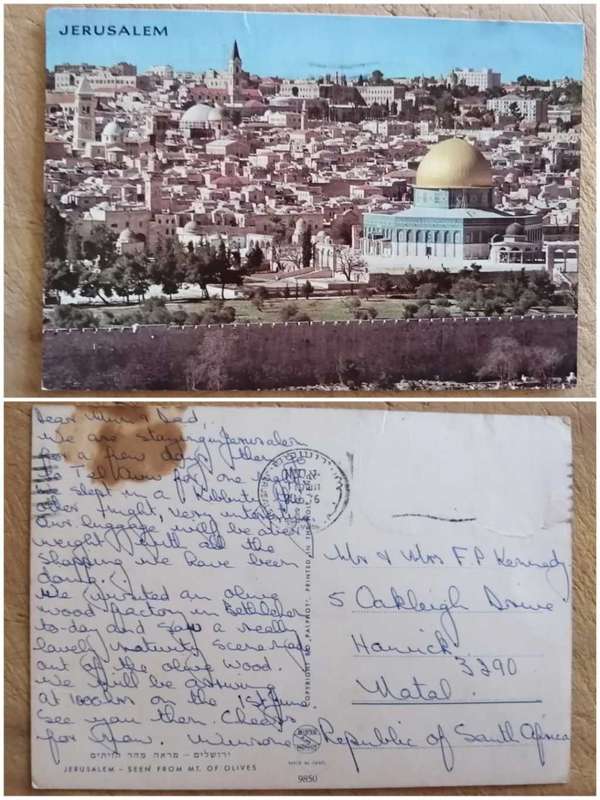 JERUSALEM
Dear Mum & Dad,
We are staying in Jerusalem
for a few days then to
Tel Aviv for one
slept in a Kibbutz the
other night, very
Our luggage will be over
weight with all the
shopping we have been
doing.
We visited an olive
wood factory in Bethlehem
to-day and saw a really
lovely nativity scene made
out of the olive wood.
We will be arriving
at on the 1st June.
See you then. Cheers
for now.
ירושלים – מראה מהר הזיתים
JERUSALEM – SEEN FROM MT. OF OLIVES
PALPHOT
MADE IN ISRAEL
9850
Mr & Mrs F.P Kennedy
5 Oakleigh Drive
Howick
3290
Natal.
Republic of South Africa